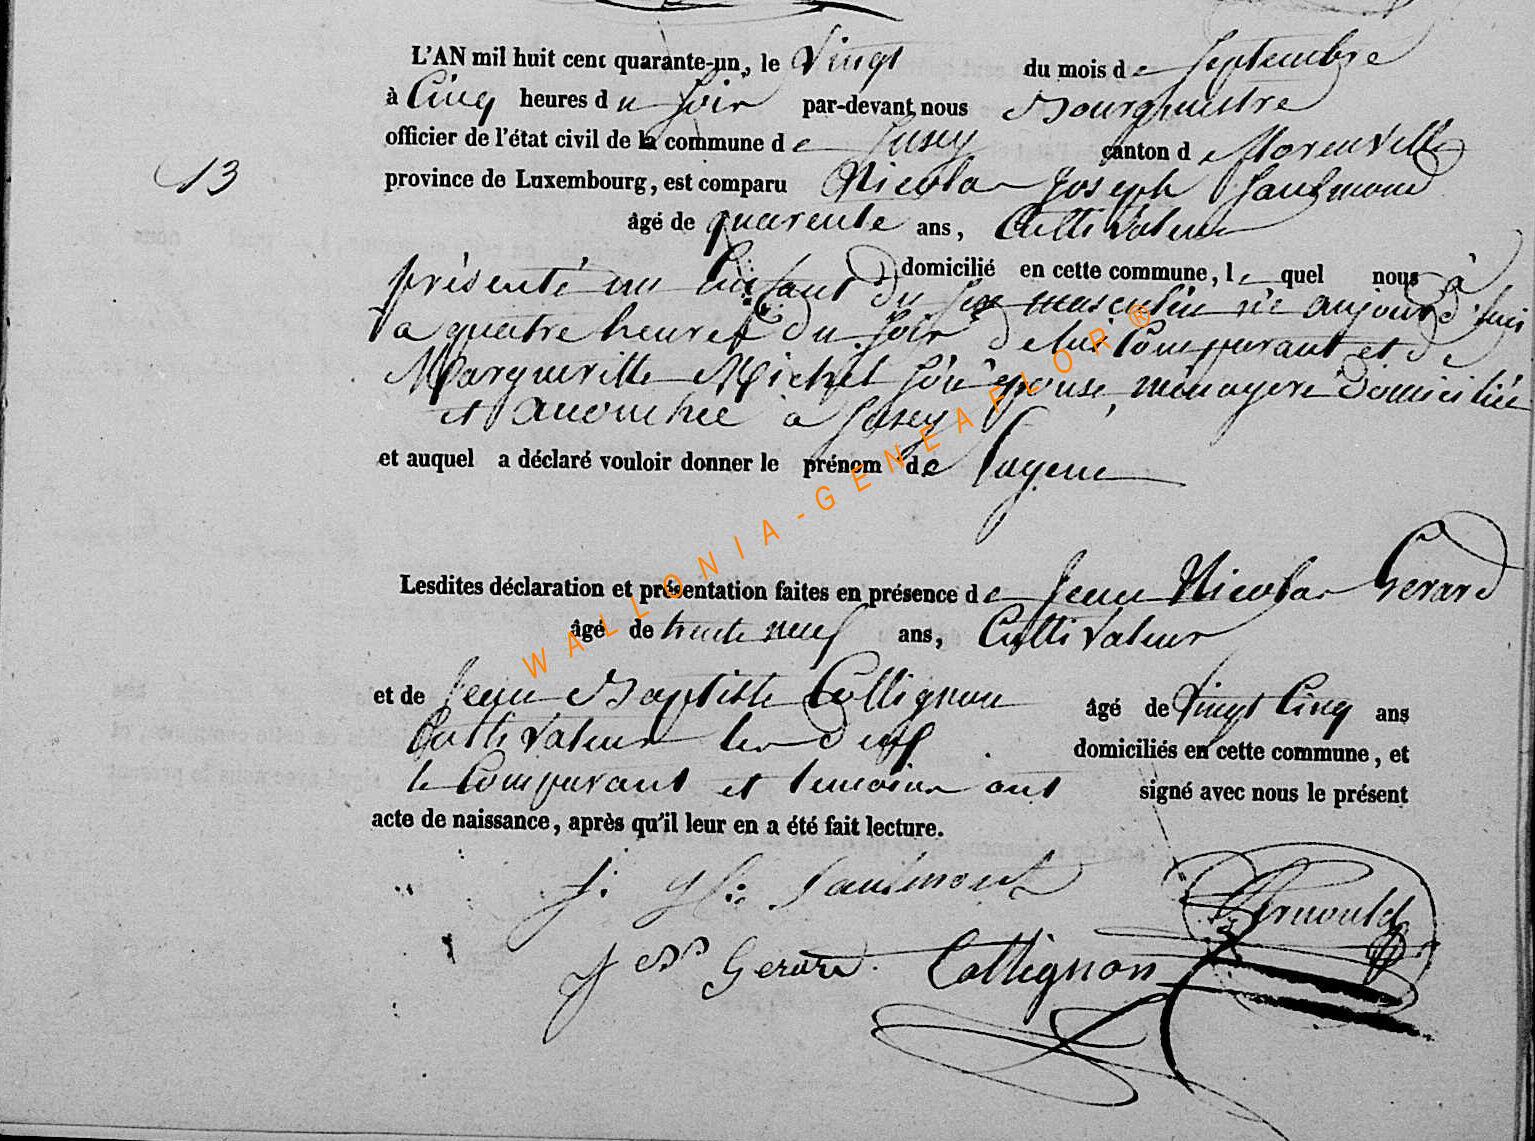 L'AN mil huit cent quarante-un, le Vingt du mois de Septembre
à Cinq heures du Soir par-devant nous Bourgmestre
officier de l'état civil de la commune de Jusey canton de Morenville
13
province de Luxembourg, est comparu Nicolas Joseph Saulmont
âgé de quarente ans, Cultivateur
domicilié en cette commune, lequel nous à
présenté un Enfant du sex masculin né aujourd'hui
a quatre heures du Soir de lui Comparant et de
Margueritte Michel son épouse, ménagere domiciliée
et accouchée à Jusey
et auquel a déclaré vouloir donner le prénom de Eugene
Lesdites déclaration et présentation faites en présence de Jean Nicolas Gerard
âgé de trente neuf ans, Cultivateur
et de Jean Baptiste Collignon âgé de Vingt Cinq ans
Cultivateur les deux domiciliés en cette commune, et
le Comparant et temoins ont signé avec nous le présent
acte de naissance, après qu'il leur en a été fait lecture.
Saulmont
Arnould
Gerard. Collignon
WALLONIA-GENEAFLOR®